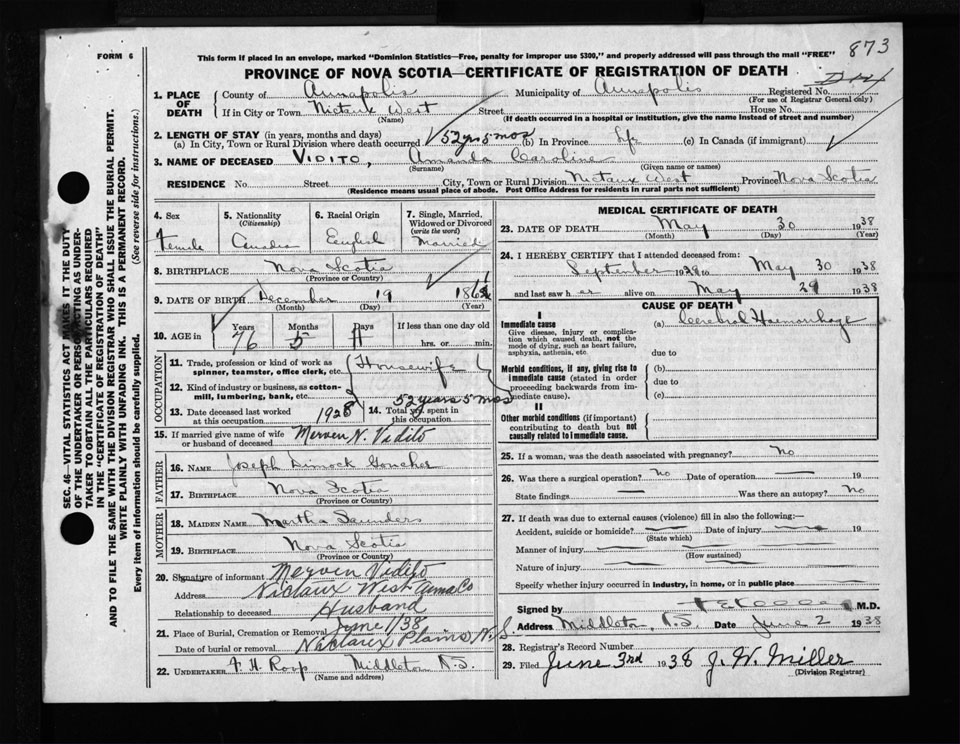 873
FORM 6
This form if placed in an envelope, marked "Dominion Statistics—Free, penalty for improper use $300," and properly addressed will pass through the mail "FREE"
PROVINCE OF NOVA SCOTIA—CERTIFICATE OF REGISTRATION OF DEATH
1. PLACE OF DEATH
County of Annapolis Municipality of Annapolis Registered No.
(For use of Registrar General only)
If in City or Town Nictaux West Street House No.
(Name) (If death occurred in a hospital or institution, give the name instead of street and number)
2. LENGTH OF STAY (in years, months and days)
(a) In City, Town or Rural Division where death occurred 52 yrs 5 mos (b) In Province Life (c) In Canada (if immigrant)
3. NAME OF DECEASED VIDITO, Amanda Caroline
(Surname) (Given name or names)
RESIDENCE No. Street City, Town or Rural Division Nictaux West Province Nova Scotia
(Residence means usual place of abode. Post Office Address for residents in rural parts not sufficient)
4. Sex
Female
5. Nationality (Citizenship)
Canadian
6. Racial Origin
English
7. Single, Married, Widowed or Divorced (write the word)
Married
8. BIRTHPLACE Nova Scotia
(Province or Country)
9. DATE OF BIRTH December 19 186
(Month) (Day) (Year)
10. AGE in Years Months Days If less than one day old
76 5 11 hrs. or min.
OCCUPATION
11. Trade, profession or kind of work as spinner, teamster, office clerk, etc. Housewife
12. Kind of industry or business, as cotton-mill, lumbering, bank, etc.
13. Date deceased last worked at this occupation 1928
14. Total yrs. spent in this occupation 52 years 5 mos
15. If married give name of wife or husband of deceased Merven N. Vidito
FATHER
16. NAME Joseph Dimock Goucher
17. BIRTHPLACE Nova Scotia
(Province or Country)
MOTHER
18. MAIDEN NAME Martha Saunders
19. BIRTHPLACE Nova Scotia
(Province or Country)
20. Signature of informant Merven Vidito
Address Nictaux West Anna Co
Relationship to deceased Husband
21. Place of Burial, Cremation or Removal
June 1/38
Date of burial or removal Nictaux Plains, N.S.
22. UNDERTAKER Middleton N.S.
(Name and address)
MEDICAL CERTIFICATE OF DEATH
23. DATE OF DEATH May 30 1938
(Month) (Day) (Year)
24. I HEREBY CERTIFY that I attended deceased from:
September 1928 to May 30 1938
and last saw her alive on May 29 1938
CAUSE OF DEATH
I
Immediate cause (a) Cerebral Haemorrhage
Give disease, injury or complication which caused death, not the mode of dying, such as heart failure, asphyxia, asthenia, etc.
due to
Morbid conditions, if any, giving rise to immediate cause (stated in order proceeding backwards from immediate cause).
(b)
due to
(c)
II
Other morbid conditions (if important) contributing to death but not causally related to immediate cause.
25. If a woman, was the death associated with pregnancy? No
26. Was there a surgical operation? No Date of operation — 19
State findings — Was there an autopsy? No
27. If death was due to external causes (violence) fill in also the following:—
Accident, suicide or homicide? — Date of injury — 19
(State which)
Manner of injury —
(How sustained)
Nature of injury —
Specify whether injury occurred in industry, in home, or in public place —
Signed by M.D.
Address Middleton, N.S. Date June 2 1938
28. Registrar's Record Number
29. Filed June 3rd 1938 J. W. Miller
(Division Registrar)
SEC. 46—VITAL STATISTICS ACT MAKES IT THE DUTY
OF THE UNDERTAKER OR PERSON ACTING AS UNDER-
TAKER TO OBTAIN ALL THE PARTICULARS REQUIRED
IN THE "CERTIFICATE OF REGISTRATION OF DEATH"
AND TO FILE THE SAME WITH THE DIVISION REGISTRAR WHO SHALL ISSUE THE BURIAL PERMIT.
WRITE PLAINLY WITH UNFADING INK. THIS IS A PERMANENT RECORD.
Every item of information should be carefully supplied. (See reverse side for instructions.)